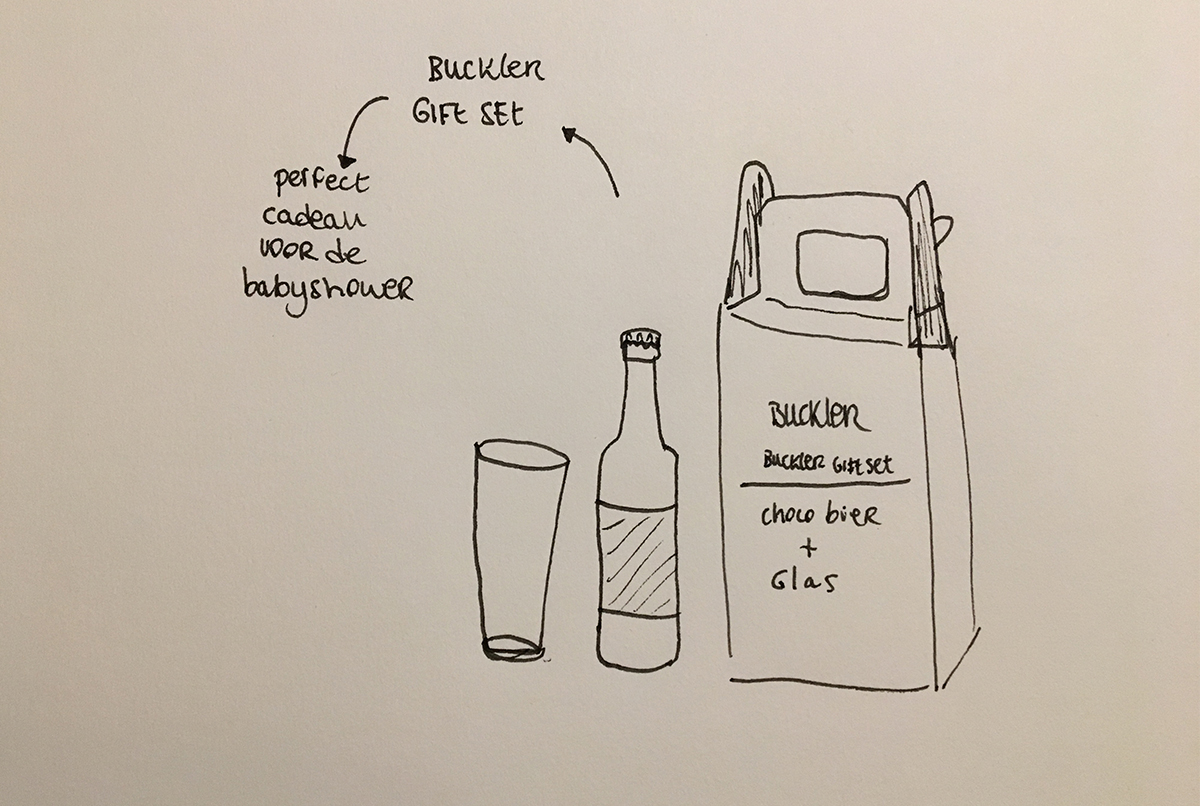 BUCKLER
GIFT SET
perfect
cadeau
VOOR de
babyshower
BUCKLER
BUCKLER GIFT SET
choco bier
+
Glas